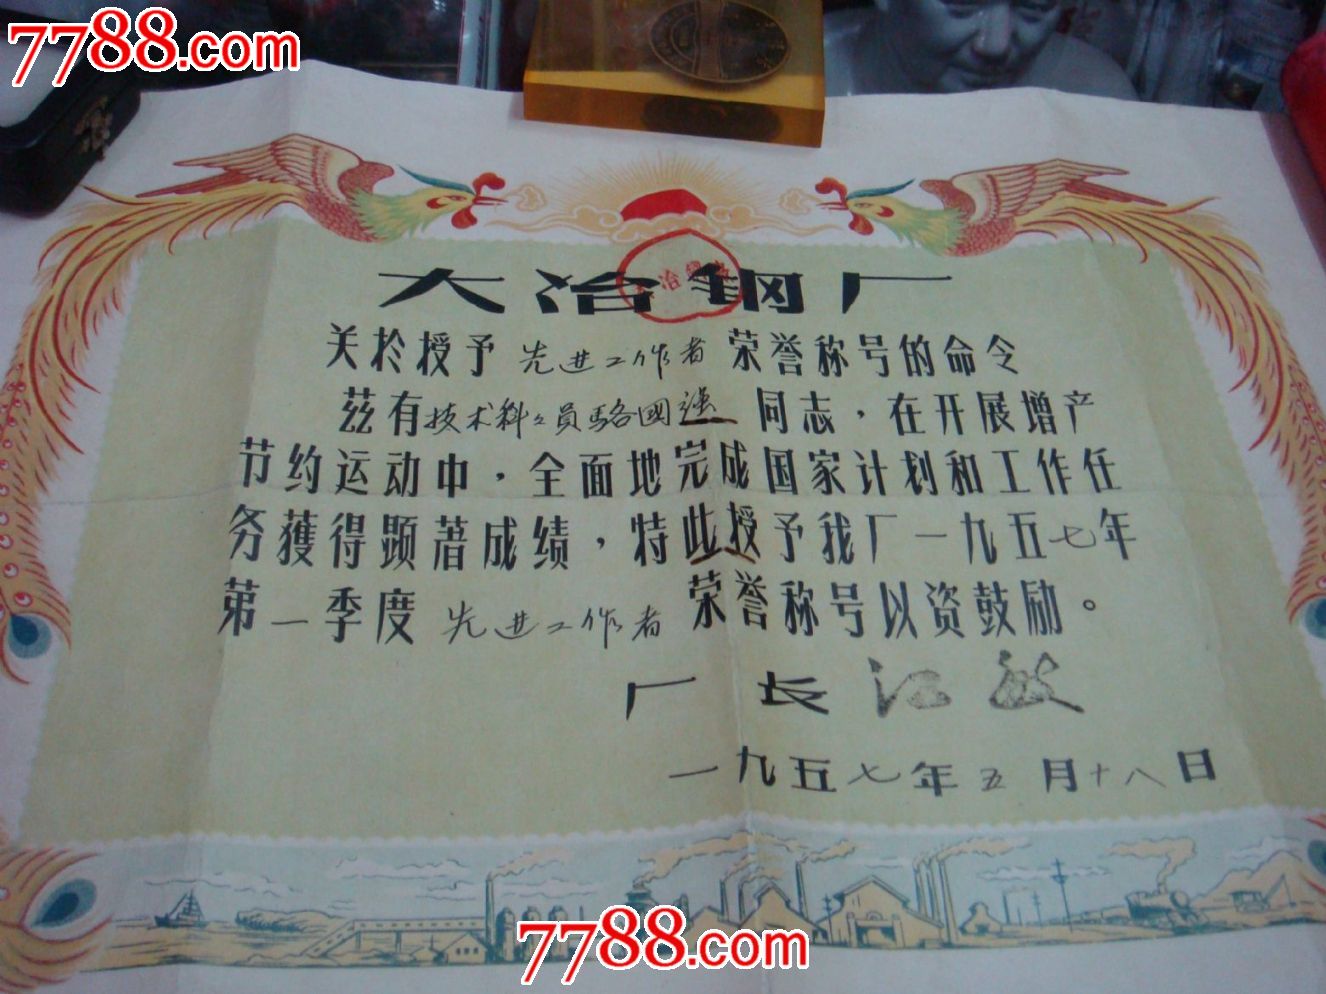 7788.com
大冶钢厂
关於授予先进工作者荣誉称号的命令
兹有技术科工员駱國强同志，在开展增产
节约运动中，全面地完成国家计划和工作任
务獲得顕著成绩，特此授予我厂一九五七年
第一季度先进工作者荣誉称号以资鼓励。
厂长 江敏
一九五七年五月十八日
7788.com